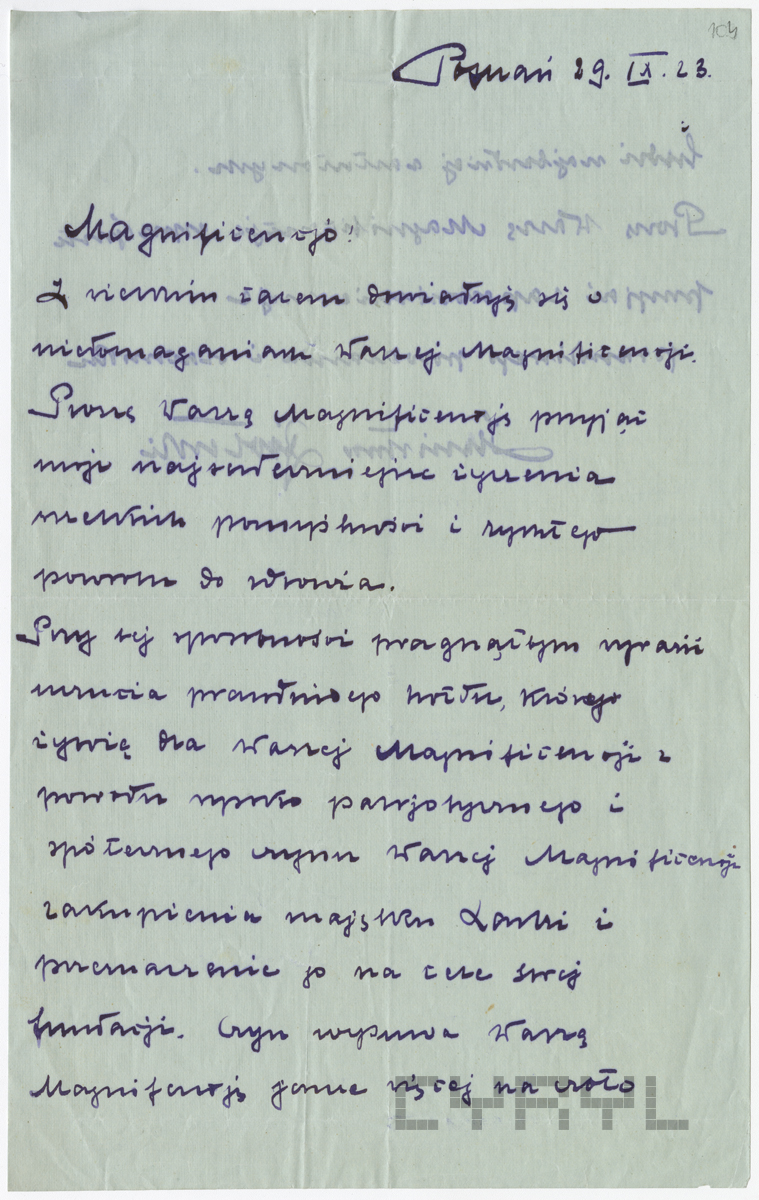 104
Poznań 29. IX. 23.
Magnificencjo!
Z wielkim żalem dowiaduję się o
niedomaganiach Waszej Magnificencji.
Proszę Waszą Magnificencję przyjąć
moje najserdeczniejsze życzenia
wszelkich pomyślności i rychłego
powrotu do zdrowia.
Przy tej sposobności pragnąłbym wyrazić
uczucia prawdziwego hołdu, którego
żywię dla Waszej Magnificencji z
powodu wysoko patrjotycznego i
społecznego czynu Waszej Magnificencji
zakupienia majątku i
przeznaczenie go na cele swej
fundacji. Czyn wysuwa Waszą
Magnifencję jeszcze więcej na czoło
CYRYL